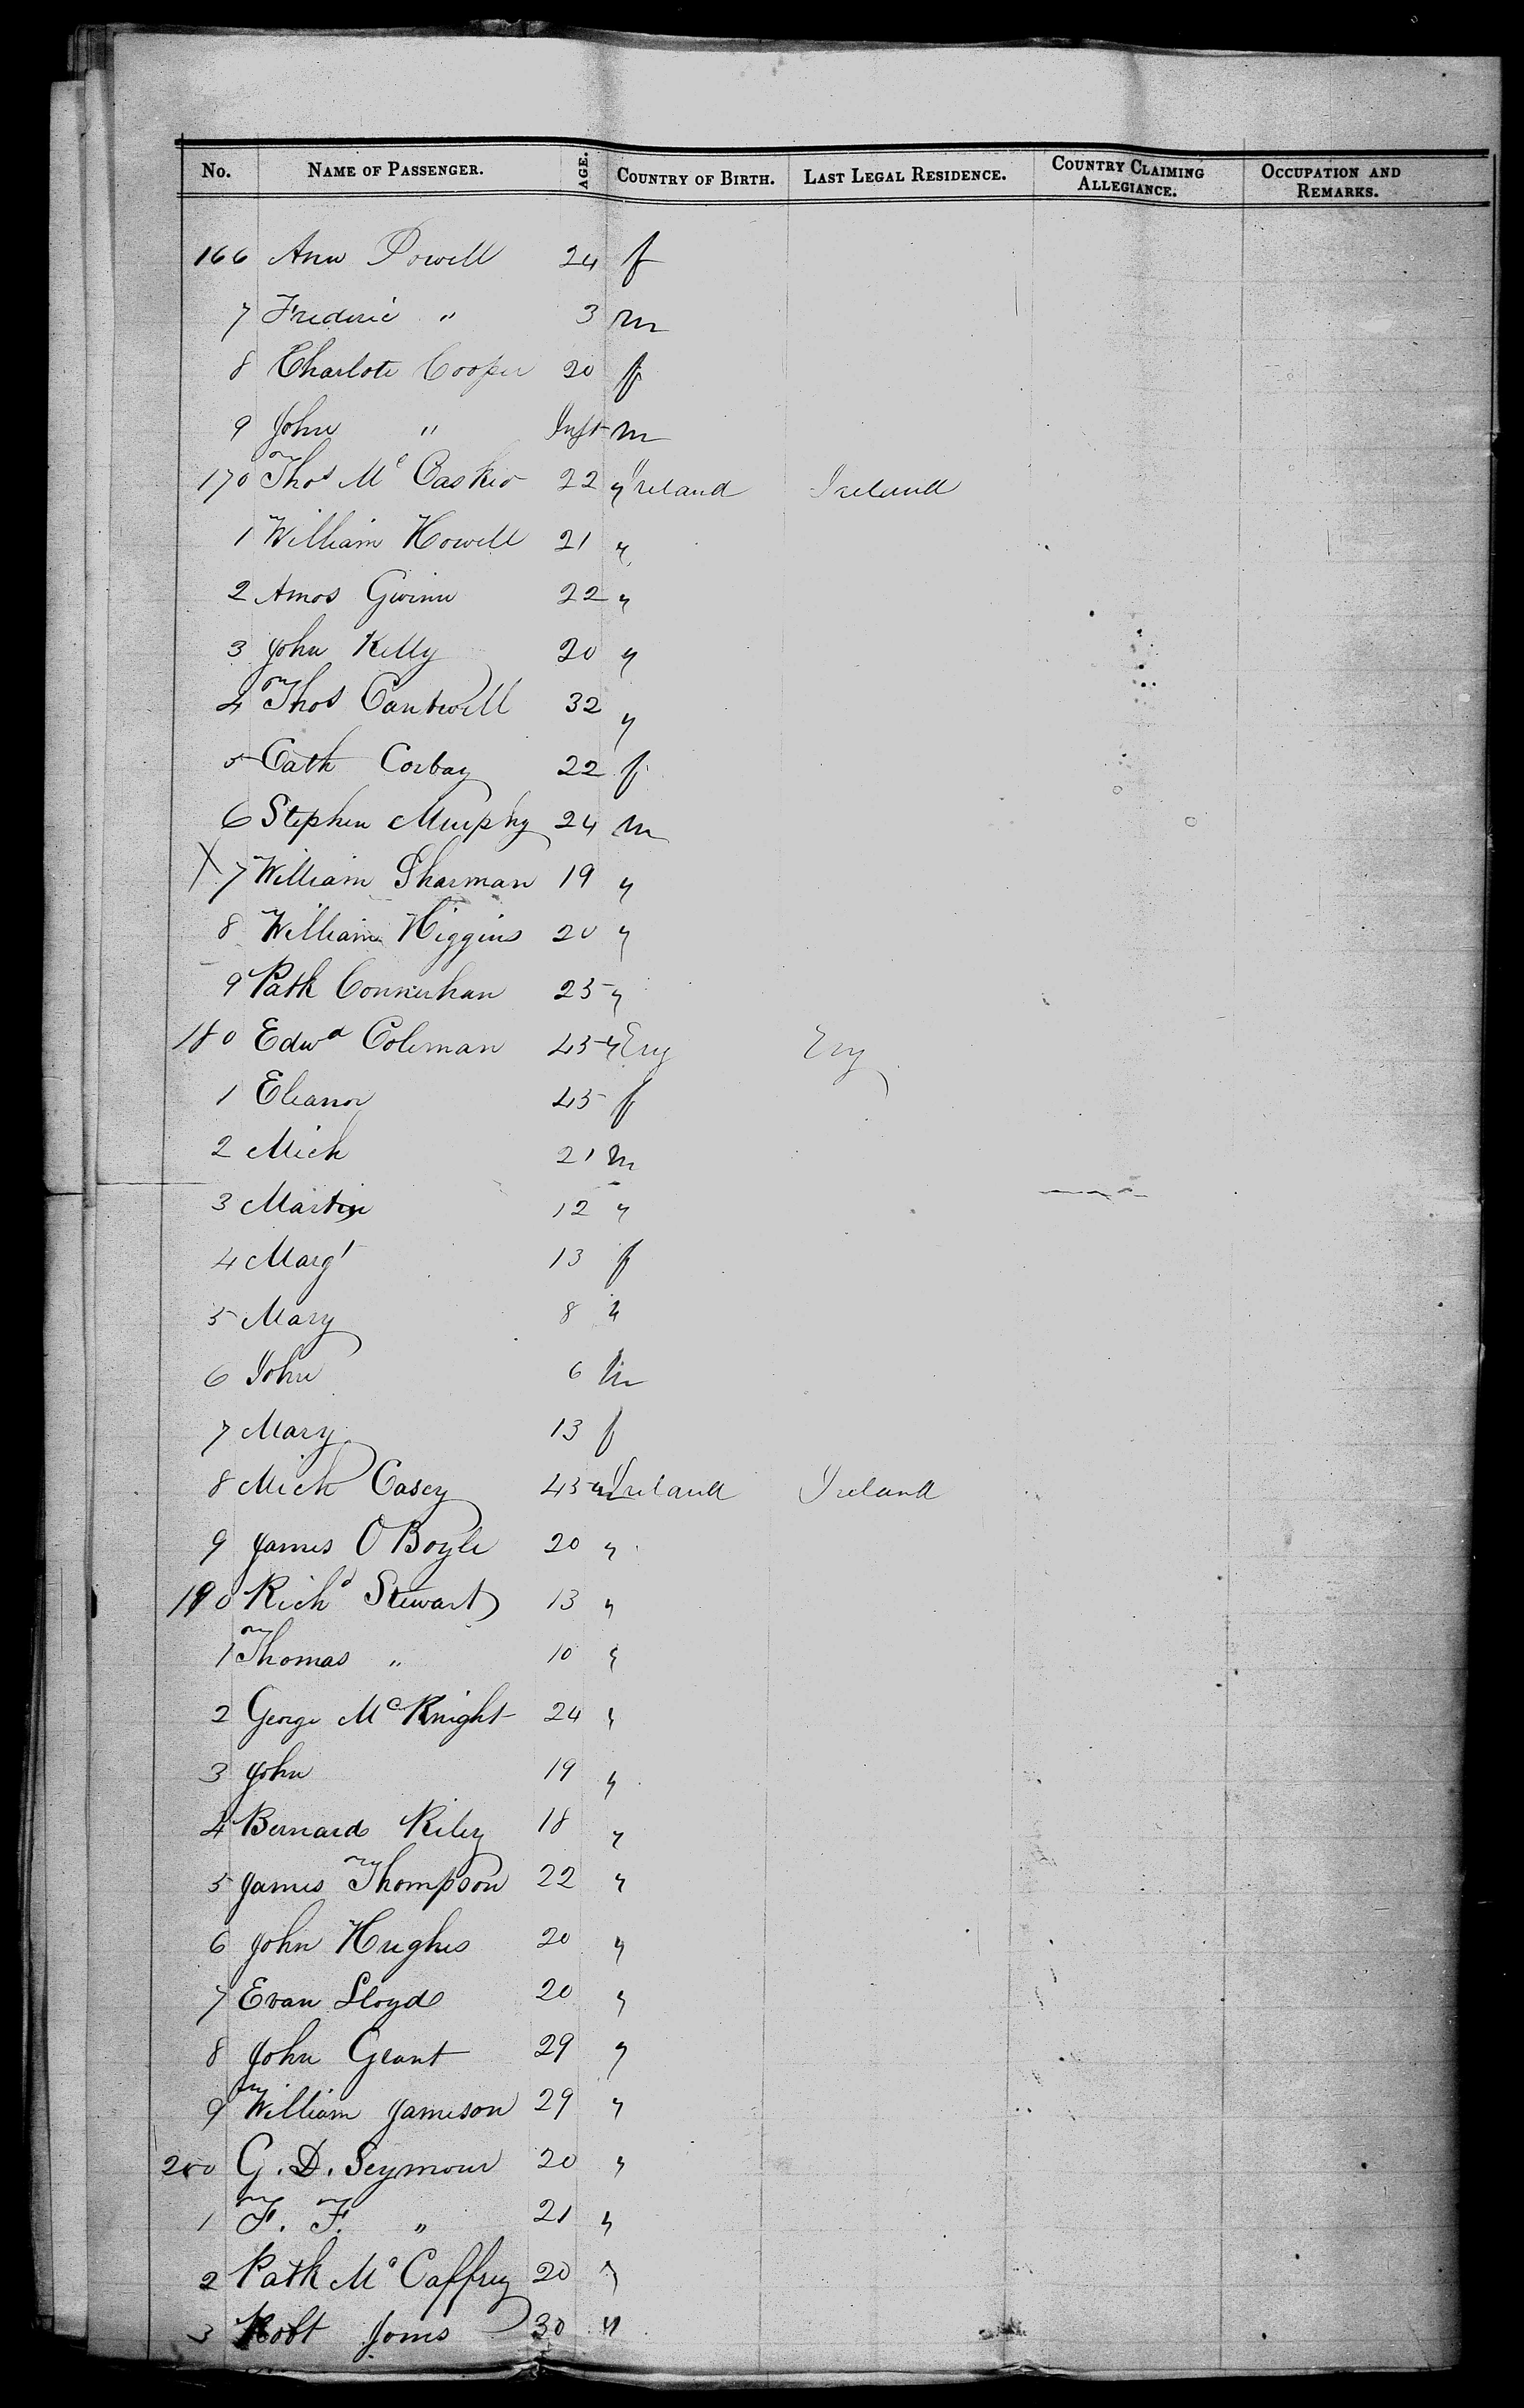 No. NAME OF PASSENGER. AGE. COUNTRY OF BIRTH. LAST LEGAL RESIDENCE. COUNTRY CLAIMING ALLEGIANCE. OCCUPATION AND REMARKS.
166 Ann Powell 24 f
7 Frederic " 3 m
8 Charlote Cooper 20 f
9 John " Inft m
170 Thos Mc Casker 22 " Ireland Ireland
1 William Howell 21 "
2 Amos Gwinn 22 "
3 John Kelly 20 "
4 Thos Cantwell 32 "
5 Cath Corbay 22 f
6 Stephen Murphy 24 m
X 7 William Sharman 19 "
8 William Higgins 20 "
9 Patk 25 "
180 Edwd Coleman 45 " Eng Eng
1 Eleanor 45 f
2 Mich 21 m
3 Martin 12 "
4 Margt 13 f
5 Mary 8 "
6 John 6 m
7 Mary 13 f
8 Mich Casey 45 m Ireland Ireland
9 James O Boyle 20 "
190 Richd Stewart 13 "
1 Thomas " 10 "
2 George Mc Knight 24 "
3 John 19 "
4 Bernard Riley 18 "
5 James Thompson 22 "
6 John Hughes 20 "
7 Evan Lloyd 20 "
8 John Grant 29 "
9 William Jameson 29 "
200 G. D. Seymour 20 "
1 F. F. " 21 "
2 Patk Mc Caffrey 20 "
3 Robt Jones 30 "